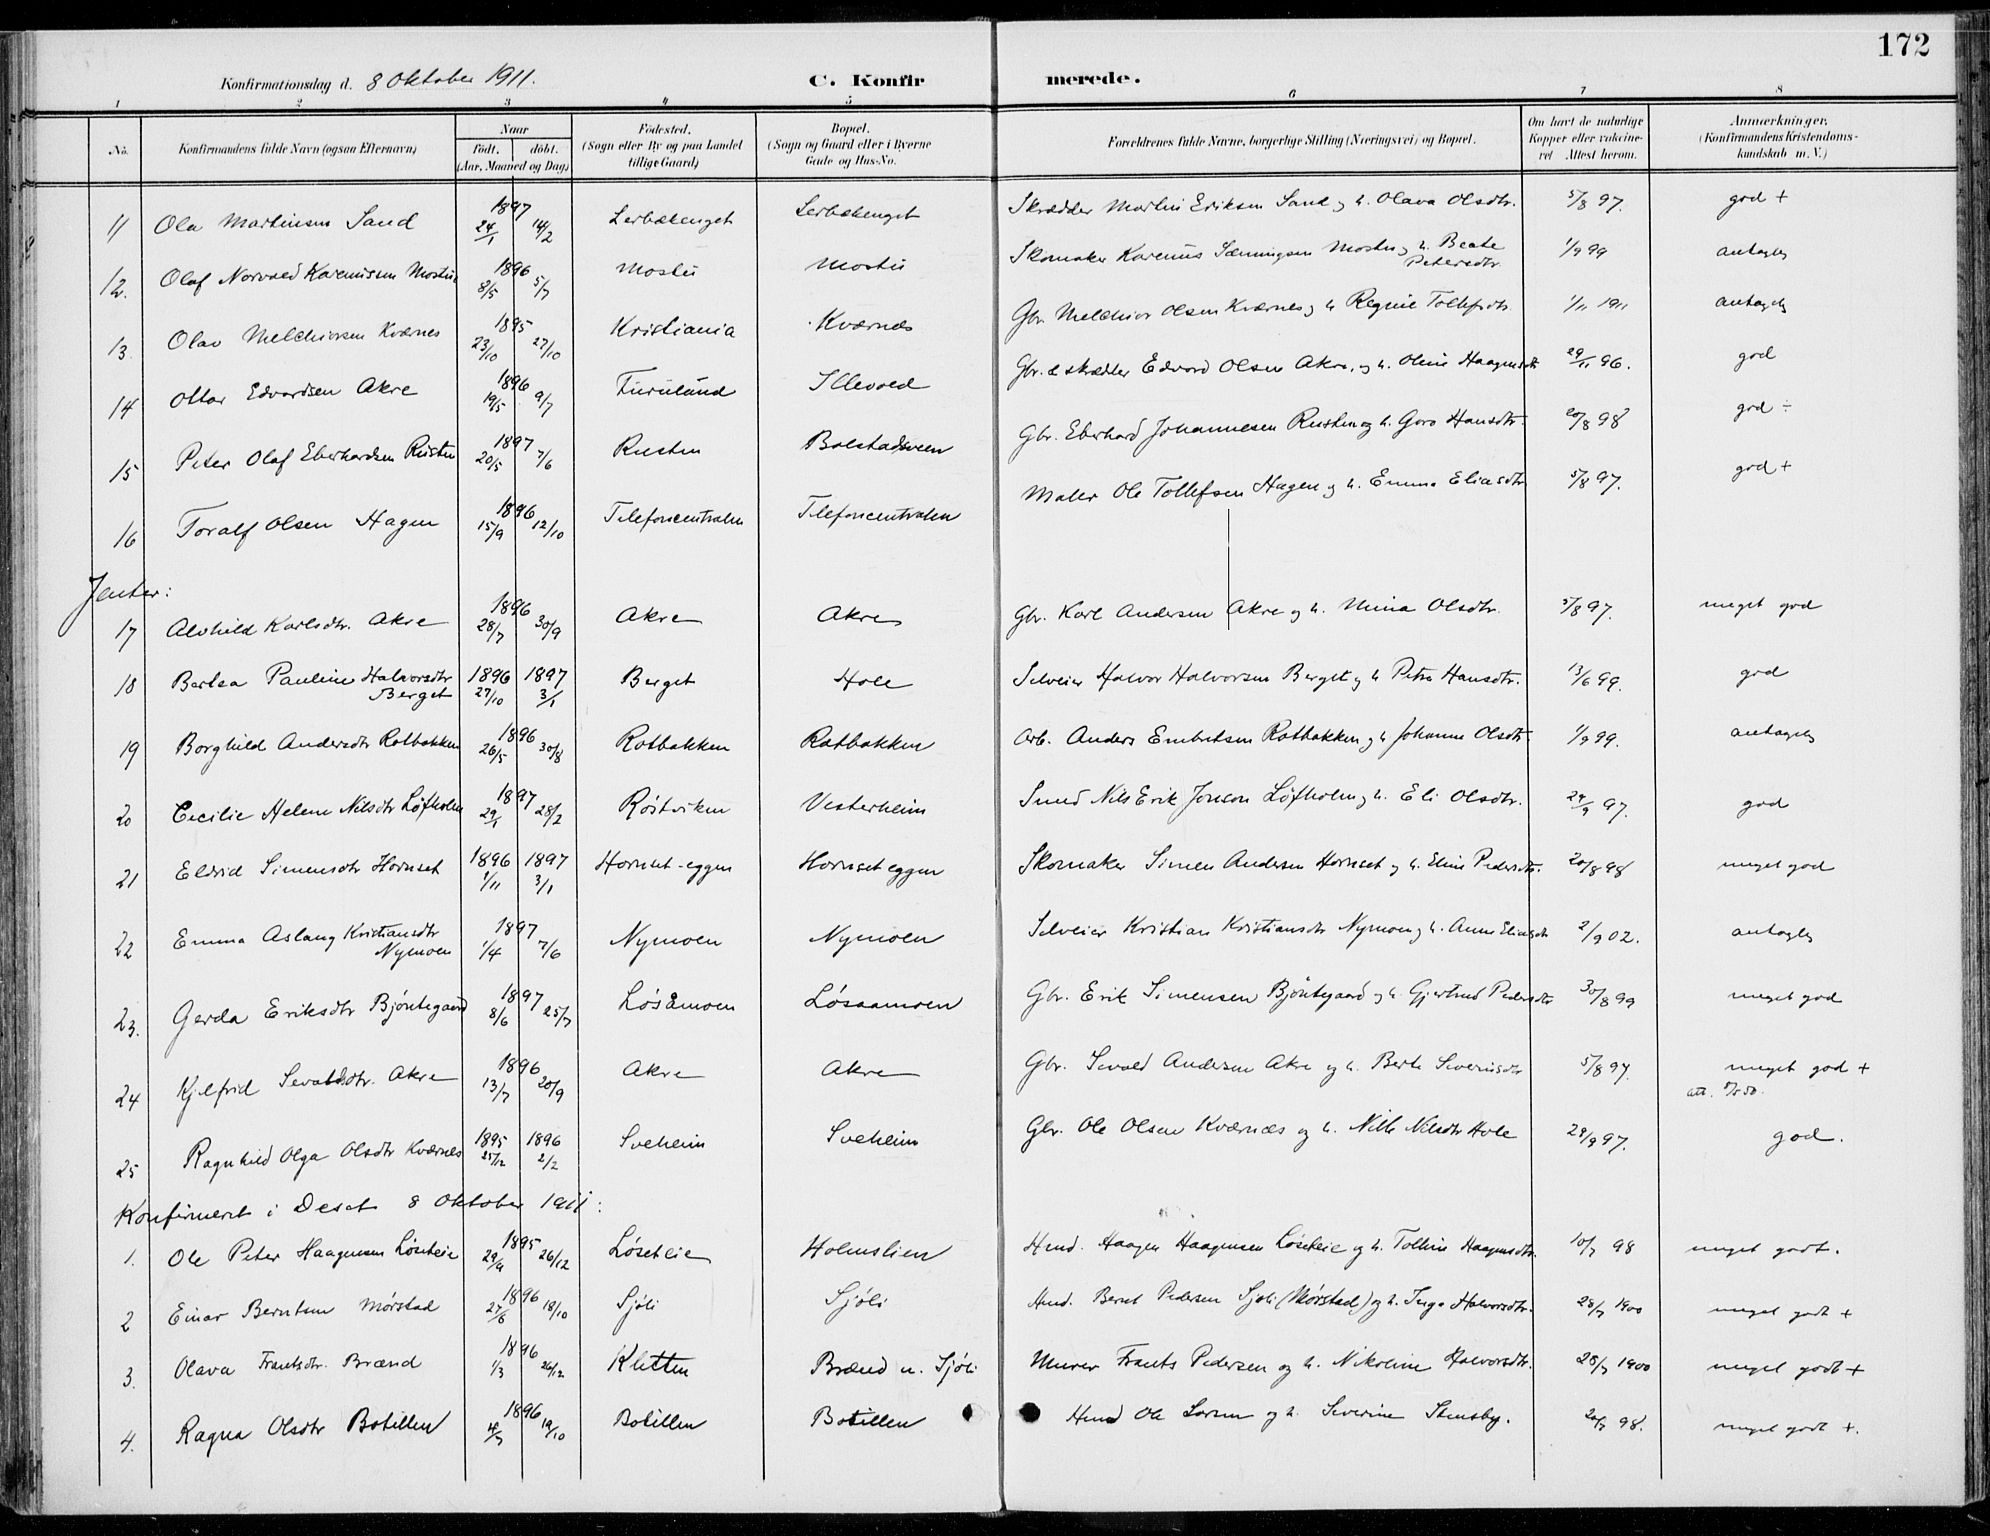 172
Konfirmationsdag d. 8 Oktober 1911. C. Konfirmerede.
1 2 3 4 5 6 7 8
No. Konfirmandens fulde Navn (ogsaa Efternavn) Naar født. døbt. (Aar, Maaned og Dag) Fødested. (Sogn eller By og paa Landet tillige Gaard) Bopæl. (Sogn og Gaard eller i Byerne Gade og Hus-No. Forældrenes fulde Navne, borgerlige Stilling (Næringsvei) og Bopæl. Om havt de naturlige Kopper eller vaccineret Attest herom. Anmærkninger. (Konfirmandens Kristendomskundskab m. V.)
11 Ola Martinsen Sand 1897 24/1 14/2 Lerbækenget Lerbækenget Skrædder Martin Eriksen Sand og h. Olava Olsdtr. 5/8 97. god +
12. Olaf Norvald Kareniusen Mostu 1896 8/5 5/7 Mostu Mostu Skomaker Karenius Sæmingsen Mostu og h. Beate Petersdtr. 1/9 99 antagelig
13. Olav Melchiorsen Kværnes 1895 23/10 27/10 Kristiania Kværnes Gbr. Melchior Olsen Kværnes og h. Regine Tollefsdtr. 1/11 1911 antagelig
14 Ottar Edvardsen Akre 1896 19/5 9/7 Furulund Illevold Gbr. & skrædder Edvard Olsen Akre, og h. Oline Haagensdtr. 29/11 96. god
15 Peter Olaf Eberhardsen Rusten 1897 20/5 7/6 Rusten Bolstadsveen Gbr. Eberhard Johannesen Rusten og h. Goro Hansdtr. 20/8 98 god ÷
16 Toralf Olsen Hagen 1896 15/9 12/10 Telefoncentralen Telefoncentralen Maler Ole Tollefsen Hagen og h. Emma Eliasdtr. 5/8 97. god +
Jenter:
17 Alvhild Karlsdtr. Akre 1896 28/7 30/9 Akre Akre Gbr. Karl Andersen Akre og h. Mina Olsdtr. 5/8 97. meget god
18 Bertea Pauline Halvorsdtr Berget 1896 27/10 1897 3/1 Berget Hole Selveier Halvor Halvorsen Berget og h. Petra Hansdtr. 13/6 99. god
19 Borghild Andersdtr Rotbakken 1896 26/5 30/8 Rotbakken Rotbakken Arb. Anders Embretsen Rotbakken og h. Johanne Olsdtr. 1/9 99. antagelig
20 Cecilie Helene Nilsdtr Løfholm 1897 29/1 28/2 Røstviken Vesterheim Smed Nils Erik Jonson Løfholm og h. Eli Olsdtr. 29/9 97. god
21 Eldrid Simensdtr Hornset 1896 1/11 1897 3/1 Hornset-eggen Hornseteggen Skomaker Simen Andersen Hornset og h. Eline Pedersdtr. 20/8 98 meget god
22 Emma Aslaug Kristiansdtr Nymoen 1897 1/4 7/6 Nymoen Nymoen Selveier Kristian Kristiansdtr Nymoen og h. Anne Eliasdtr 2/9 02. antagelig
23. Gerda Eriksdtr Bjøntegaard 1897 8/6 25/7 Løsåmoen Løsaamoen Gbr. Erik Simensen Bjøntegaard og h. Gjertrud Pedersdtr 30/8 99 meget god
24 Kjelfrid Sevaldsdtr. Akre 1896 13/7 20/9 Akre Akre Gbr. Sevald Andersen Akre og h. Berte Severinsdtr 5/8 97. meget god +
att.
25 Ragnhild Olga Olsdtr Kværnes 1895 25/12 1896 2/2 Sveheim Sveheim Gbr. Ole Olsen Kværnes og h. Nille Nilsdtr Hole 29/9 97. god.
Konfirmeret i Deset 8 Oktober 1911:
1. Ole Peter Haagensen Løsetlie 1895 29/9 26/12 Løsetlie Holmslien Hmd. Haagen Haagensen Løsetlie og h. Tolline Haagensdtr. 10/7 98 meget godt.
2 Einar Berntsen Mørstad 1896 27/6 18/10 Sjøli Sjøli Hmd. Bernt Pedersen Sjøli (Mørstad) og h. Inga Halvorsdtr. 28/7 1900 meget godt +
3. Olava Frantsdtr. Brænd 1896 1/3 26/12 Kletten Brænd u. Sjøli Murer Frants Pedersen og h. Nikoline Halvorsdtr. 28/7 1900 meget godt +
4. Ragna Olsdtr Botillen 1896 19/10 Botillen Botillen Hmd Ole Larsen og h. Severine Stensby. 20/7 98. meget godt +.